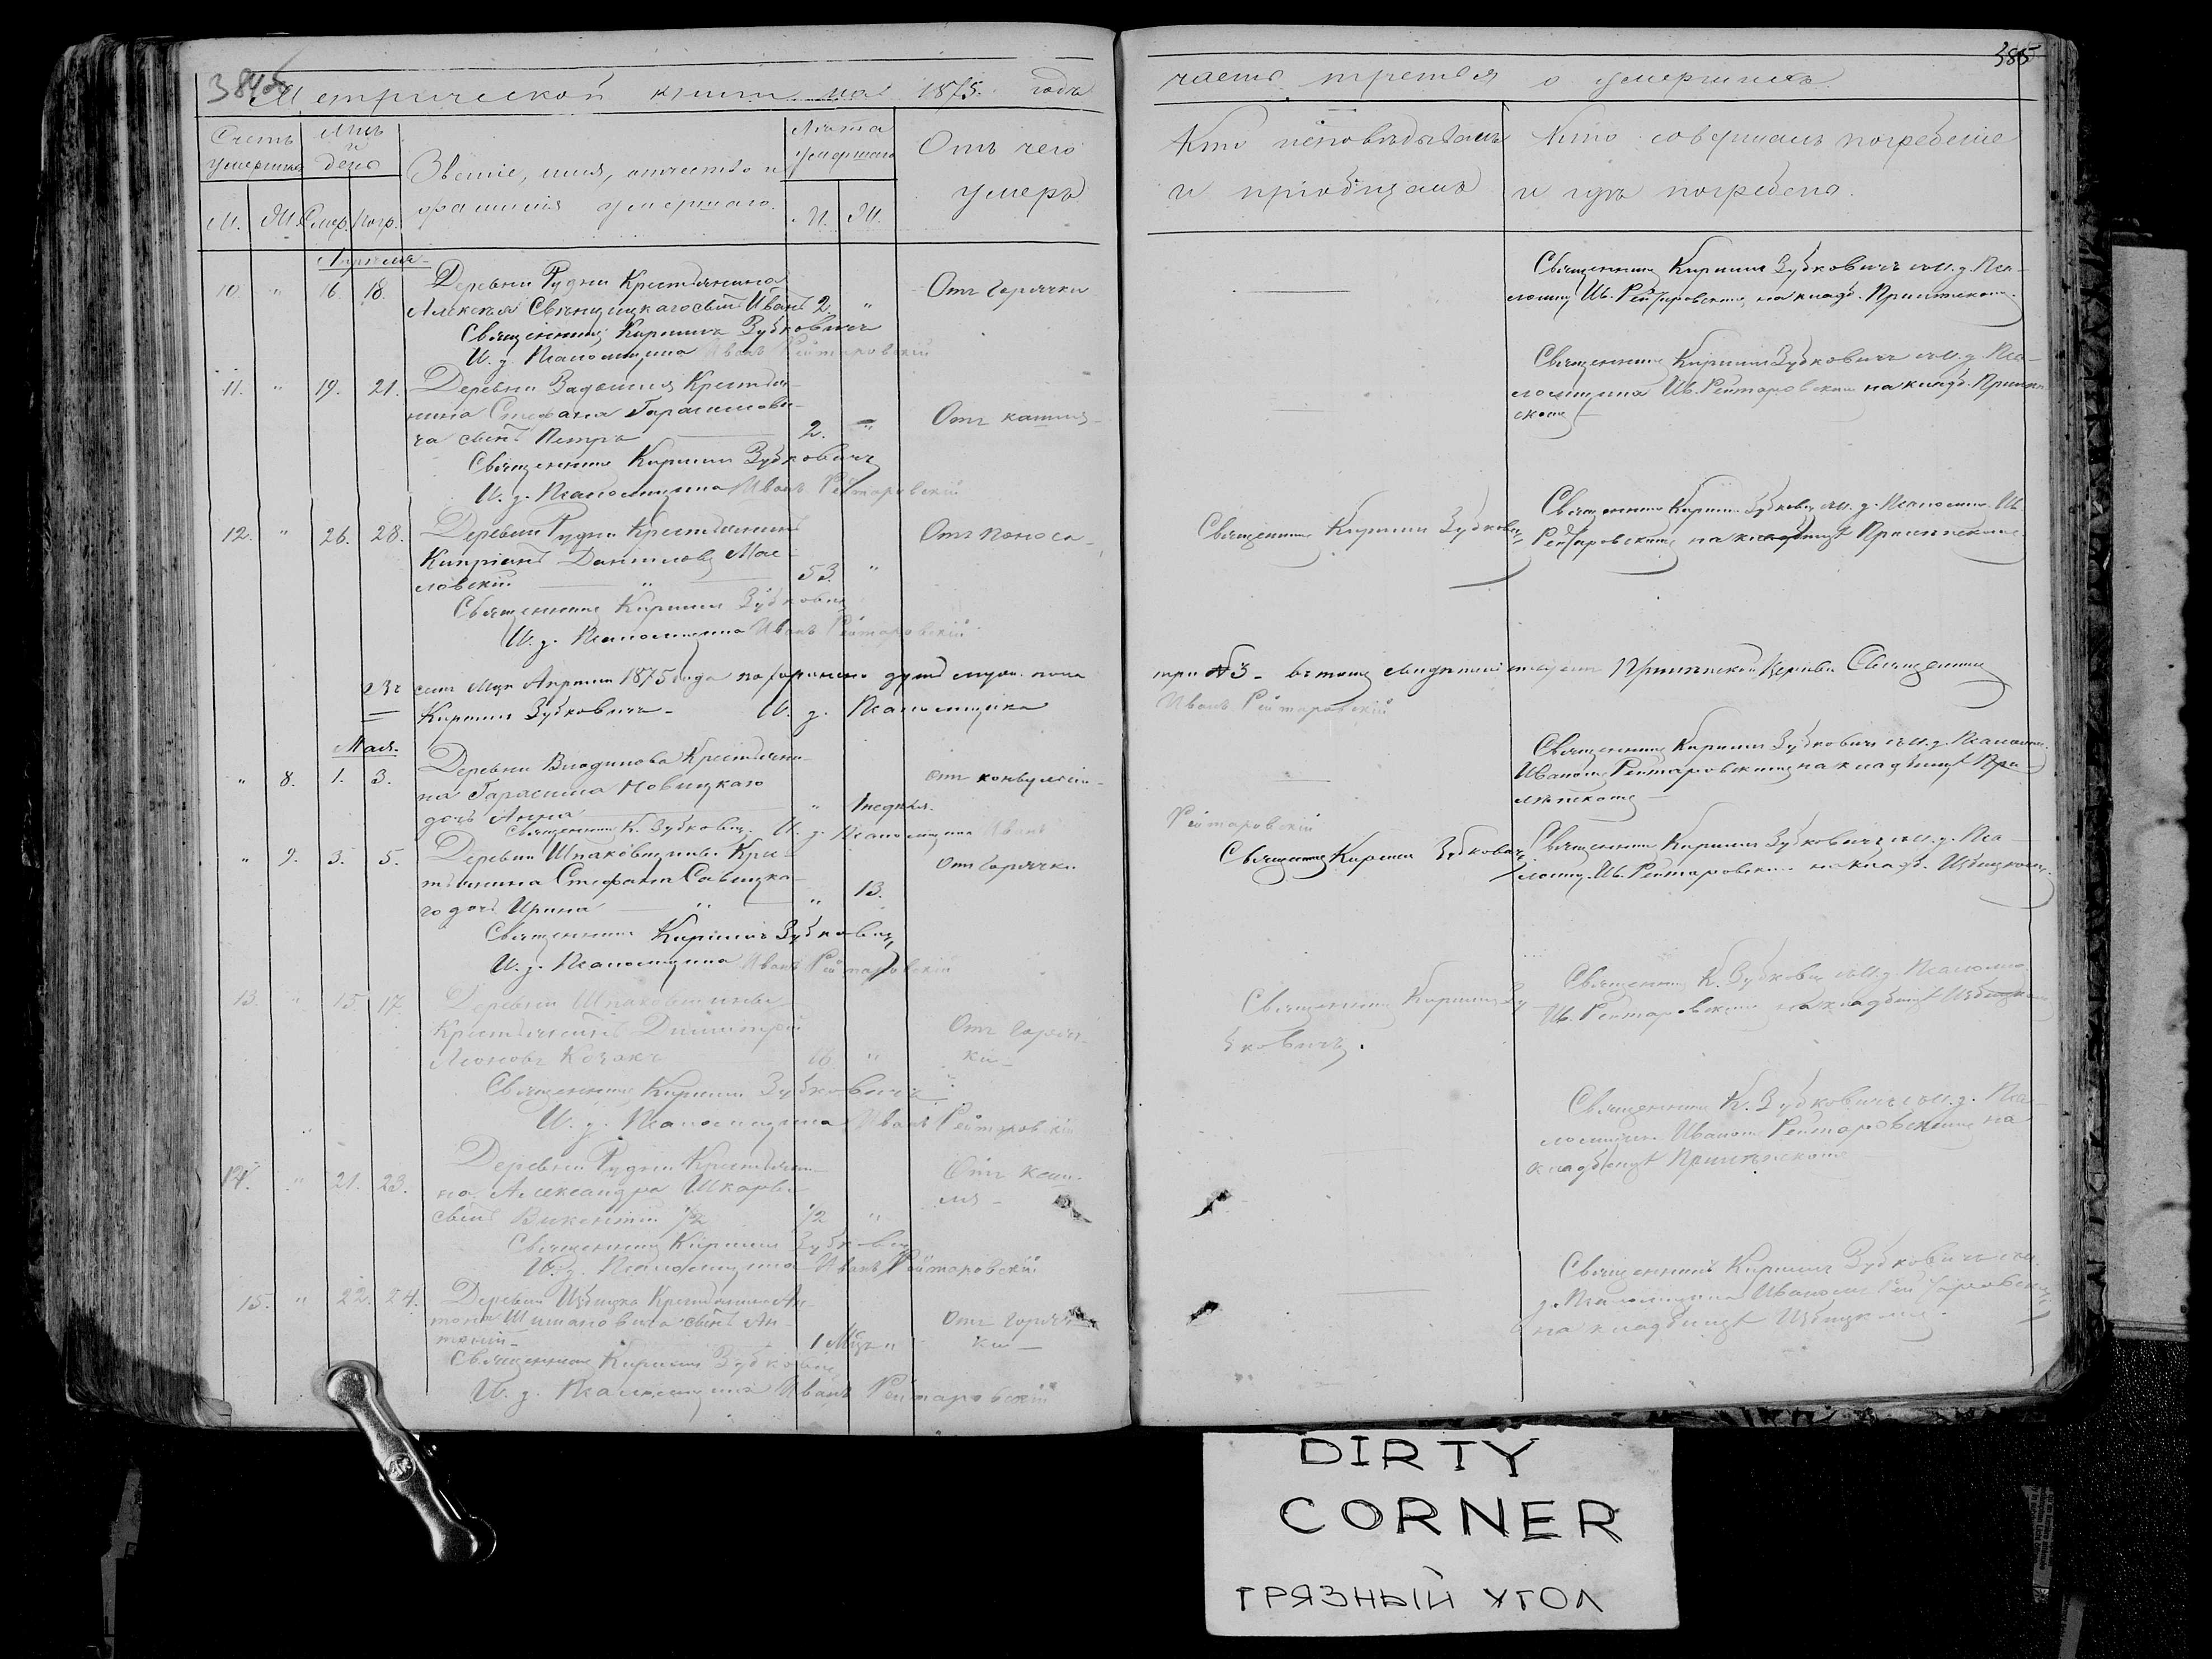 384
385
Метрической книги на 1875 годъ
часть третья о умершихъ
Счетъ умершихъ
Мѣс. и день
Званіе, имя, отчество и фамилія умершаго.
Лѣта умершаго
Отъ чего умеръ
Кто исповѣдывалъ и пріобщалъ
Кто совершалъ погребеніе и гдѣ погребенъ.
М. Ж. Смер. Погр. М. Ж.
Апрѣля
10. " 16. 18. Деревни Рудни Крестьянина
Алексѣя сынъ Иванъ 2. " Отъ горячки
Священникъ Кириллъ Зубковичъ
И. д. Псаломщика Иванъ Рейтаровскій
Священникъ Кириллъ Зубковичъ съ и. д. Пса-
ломщ. Ив. Рейтаровскимъ на кладб.
11. " 19. 21. Деревни Крестья-
нина Стефана Гарасимови-
ча сынъ Петръ 2. " Отъ кашля
Священникъ Кириллъ Зубковичъ
И. д. Псаломщика Иванъ Рейтаровскій
Священникъ Кириллъ Зубковичъ съ и. д. Пса-
ломщика Ив. Рейтаровскимъ на кладб.
12. " 26. 28. Деревни Рудни Крестьянинъ
Кипріанъ Даниловъ Мас-
ловскій " 53. " Отъ поноса
Священникъ Кириллъ Зубковичъ
И. д. Псаломщика Иванъ Рейтаровскій
Священникъ Кириллъ Зубковичъ
Священникъ Кириллъ Зубкович съ и. д. Псаломщ. Ив.
Рейтаровскимъ на кладбищѣ
Въ семъ Мцѣ Апрѣлѣ 1875 года похоронено душъ муж. пола
три №3 - въ томъ Церкви Священникъ
Кириллъ Зубковичъ И. д. Псаломщика
Иванъ Рейтаровскій
Мая.
" 8. 1. 3. Деревни Крестьяни-
на Гарасима Новицкаго
дочь Анна " 1 недѣля. Отъ конвульсіи
Священникъ К. Зубковичъ. И. д. Псаломщика Иванъ
Рейтаровскій
Священникъ Кириллъ Зубковичъ съ и. д. Псаломщ.
Иваномъ Рейтаровскимъ на кладбищѣ
" 9. 3. 5. Деревни Шпаковщины Крес-
тьянина Стефана Савицка-
го дочь Ирина " " 13. Отъ горячки
Священникъ Кириллъ Зубковичъ
И. д. Псаломщика Иванъ Рейтаровскій
Священникъ Кириллъ Зубковичъ
Священникъ Кириллъ Зубковичъ съ и. д. Пса-
ломщ. Ив. Рейтаровскимъ на кладб.
13. " 15. 17. Деревни Шпаковщины
Крестьянинъ Димитрій
Леоновъ Козакъ " Отъ горяч-
ки
Священникъ Кириллъ Зубковичъ
И. д. Псаломщика Иванъ Рейтаровскій
Священникъ Кириллъ Зу-
бковичъ.
Священникъ К. Зубковичъ съ и. д. Псаломщ.
Ив. Рейтаровскимъ на кладбищѣ
14. " 21. 23. Деревни Рудни Крестьяни-
на Александра
сынъ Викентій 1/2 1/2 " Отъ каш-
ля
Священникъ Кириллъ Зубковичъ
И. д. Псаломщика Иванъ Рейтаровскій
Священникъ К. Зубковичъ съ и. д. Пса-
ломщик. Иваномъ Рейтаровскимъ на
кладбищѣ
15. " 22. 24. Деревни Крестьянина Ан-
тона Шимановича сынъ Ан-
тоній 1 Мцъ " Отъ горяч-
ки
Священникъ Кириллъ Зубковичъ
И. д. Псаломщика Иванъ Рейтаровскій
Священникъ Кириллъ Зубковичъ съ и.
д. Псаломщика Иваномъ Рейтаровским
на кладбищѣ
DIRTY
CORNER
ГРЯЗНЫЙ УГОЛ